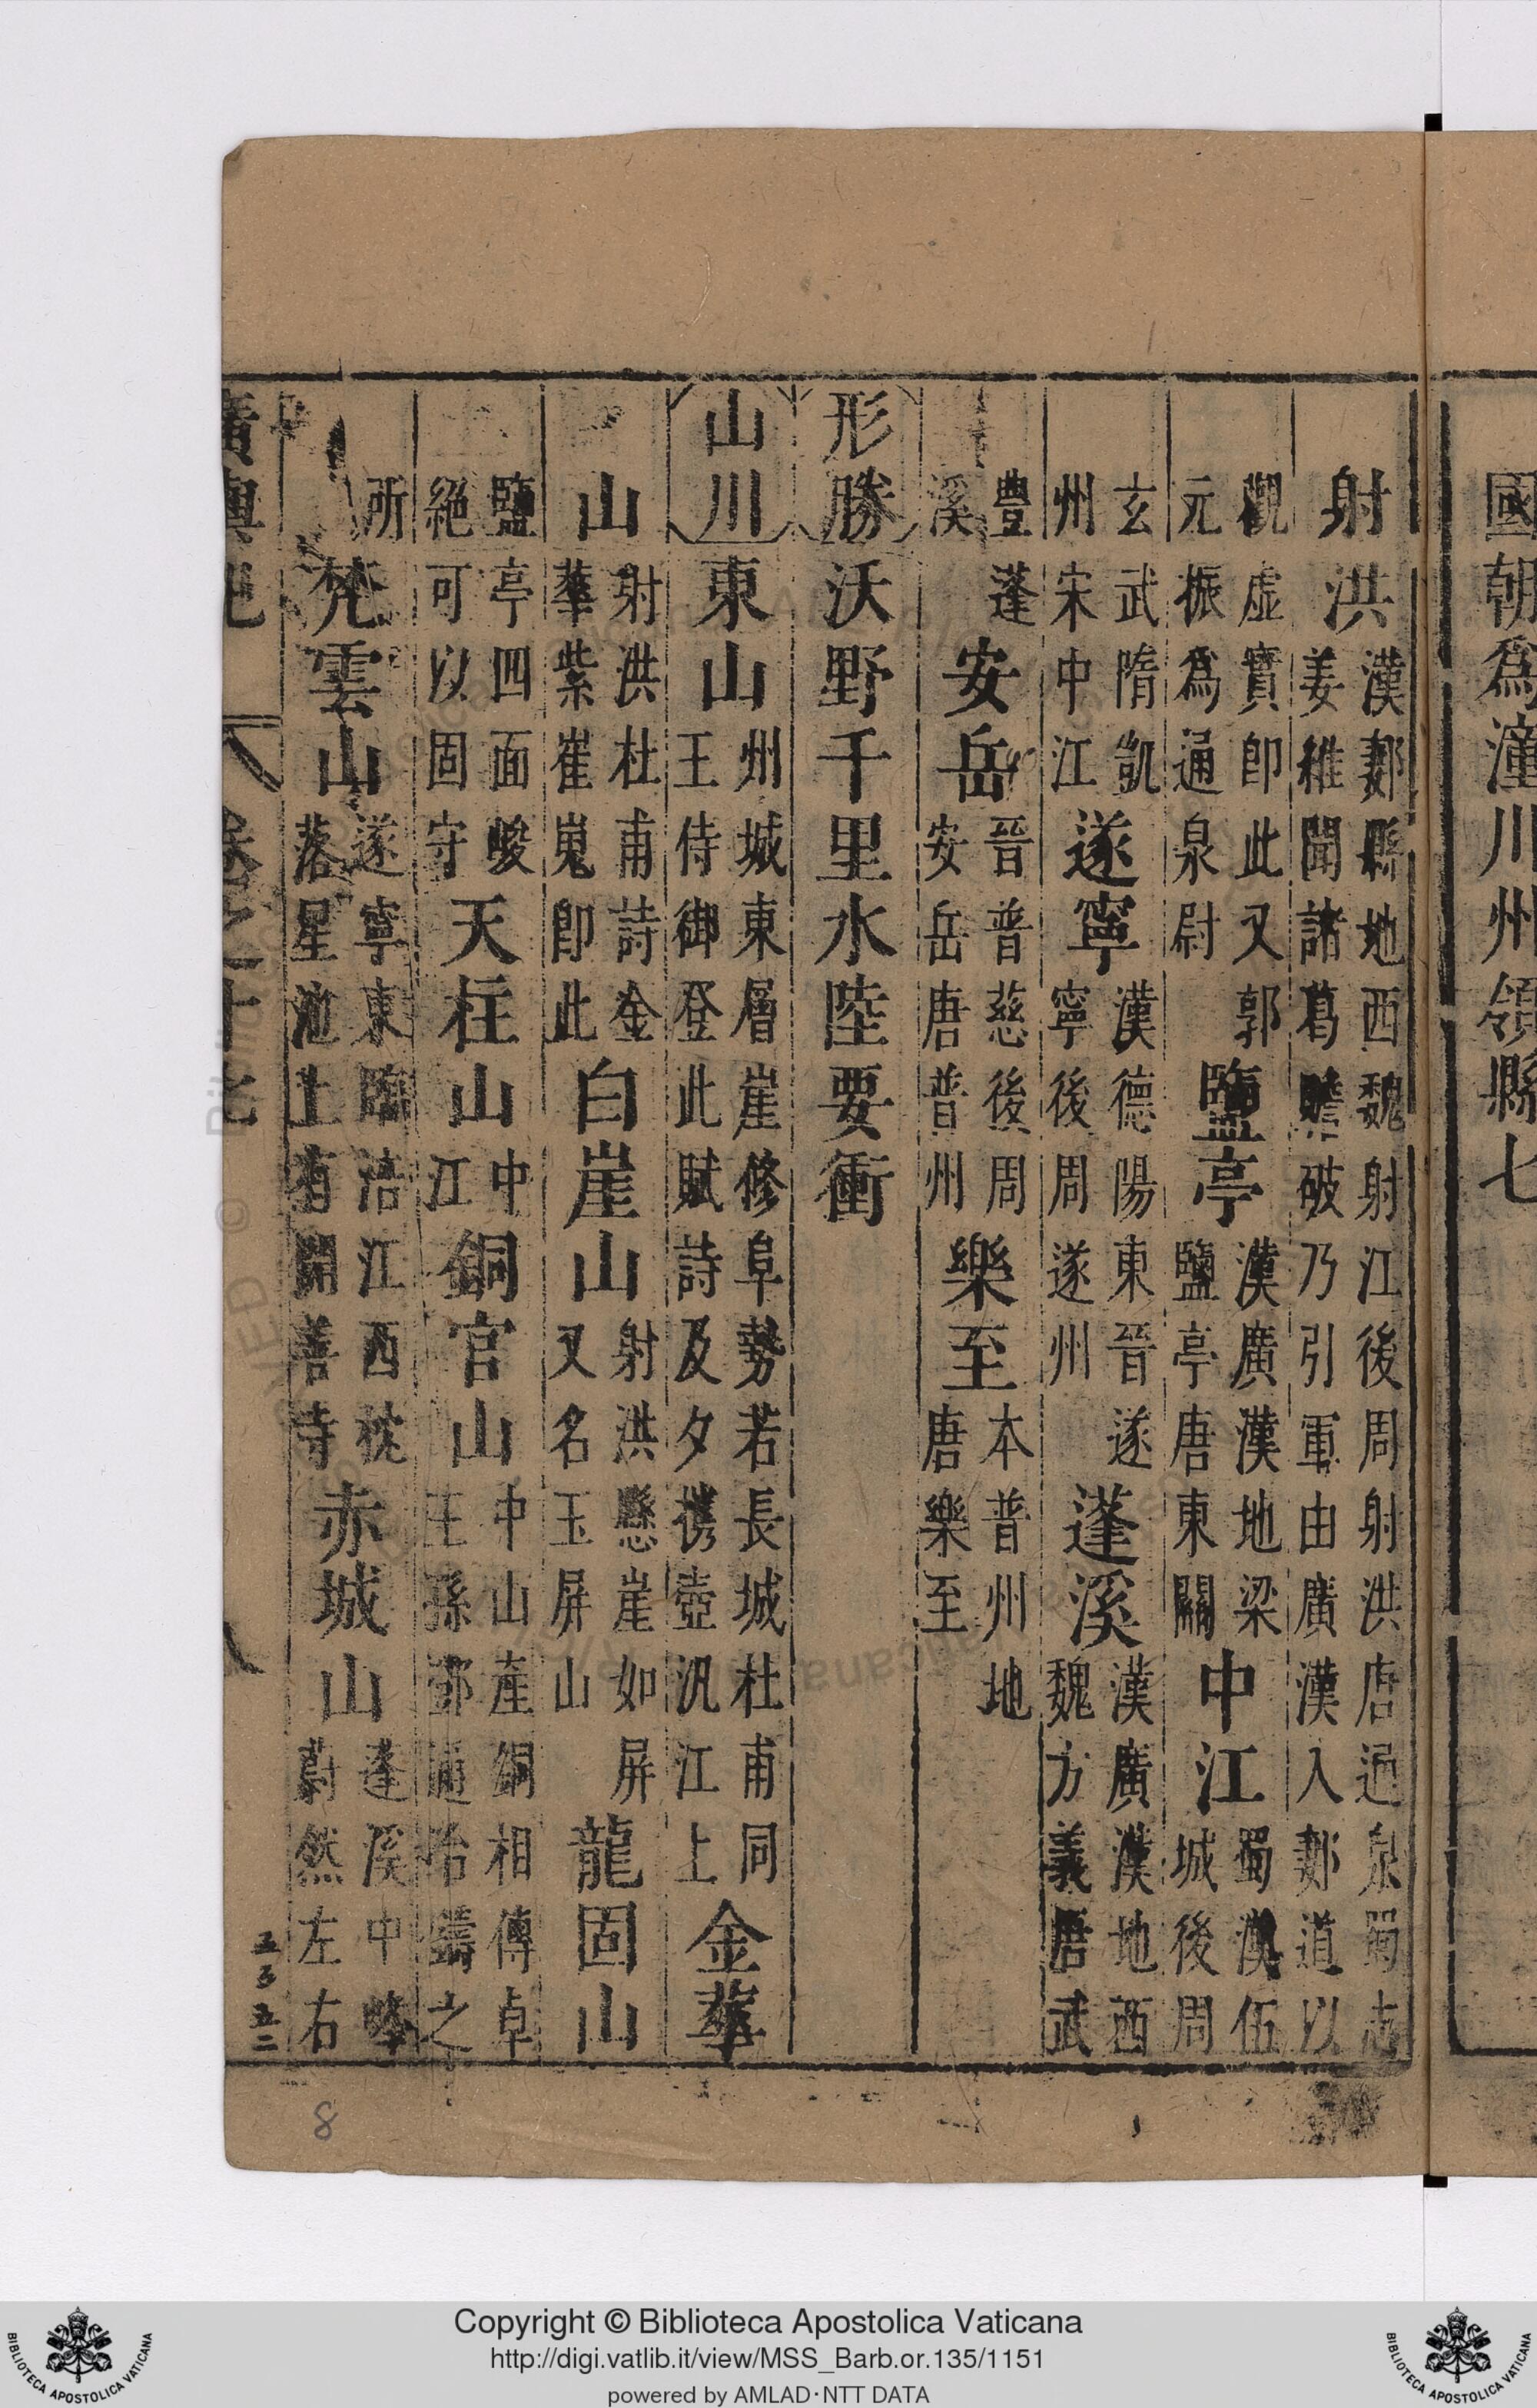 國朝爲潼川州領縣七
射洪漢郪縣地西魏射江後周射洪唐通泉蜀志
姜維聞諸葛瞻破乃引軍由廣漢入郪道以
觀虛實卽此又郭
元振爲通泉尉
鹽亭漢廣漢地梁
鹽亭唐東關
中江蜀漢伍
城後周
玄武隋凱
州宋中江
遂寧漢德陽東晉遂
寧後周遂州
蓬溪漢廣漢地西
魏方義唐武
豐蓬
溪
安岳晉普慈後周
安岳唐普州
樂至本普州地
唐樂至
形勝沃野千里水陸要衝
山川東山州城東層崖修阜勢若長城杜甫同
王侍御登此賦詩及夕携壺汎江上
金華
山射洪杜甫詩金
華紫崔嵬卽此
白崖山射洪懸崖如屏
又名玉屏山
龍固山
鹽亭四面峻
絕可以固守
天柱山中
江
銅官山中山產銅相傳卓
王孫鄧通冶鑄之
所
梵雲山遂寧東臨涪江西枕
落星池上有開善寺
赤城山蓬溪中峰
蔚然左右
廣輿記 卷之十七
8
Copyright © Biblioteca Apostolica Vaticana
http://digi.vatlib.it/view/MSS_Barb.or.135/1151
powered by AMLAD·NTT DATA
BIBLIOTECA APOSTOLICA VATICANA
BIBLIOTECA APOSTOLICA VATICANA